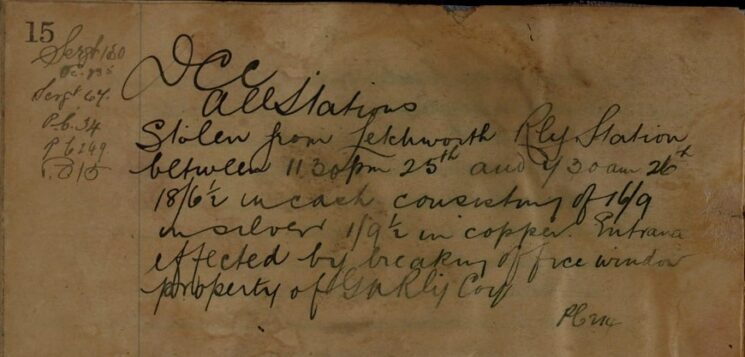 15
Sergt 130
Sergt 67.
P.C. 34
P.C 249
DCC
All Stations
Stolen from Letchworth Rly Station
between 11 30pm 25th and 30am 26th
18/6½ in cash consisting of 16/9
in silver 1/9½ in copper. Entrance
effected by breaking office window
property of GNRly Coy
PC